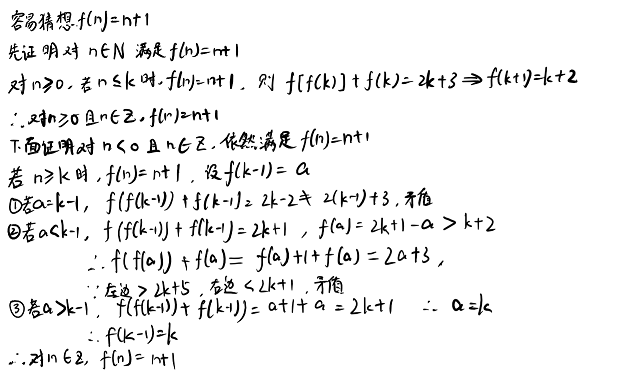 容易猜想 f(n)=n+1
先证明对 n∈N 满足 f(n)=n+1
对n≥0, 若 n≤k 时, f(n)=n+1, 则 f[f(k)]+f(k)=2k+3⇒f(k+1)=k+2
∴对n≥0 且 n∈Z, f(n)=n+1
下面证明对 n<0 且 n∈Z, 依然满足 f(n)=n+1
若 n≥k 时, f(n)=n+1, 设 f(k-1)=a
①若a=k-1, f(f(k-1))+f(k-1)=2k-2≠2(k-1)+3, 矛盾
②若a<k-1, f(f(k-1))+f(k-1)=2k+1, f(a)=2k+1-a>k+2
∴f(f(a))+f(a)=f(a)+1+f(a)=2a+3,
∵左边>2k+5, 右边<2k+1, 矛盾
③若a>k-1, f(f(k-1))+f(k-1)=a+1+a=2k+1 ∴a=k
∴f(k-1)=k
∴对n∈Z, f(n)=n+1